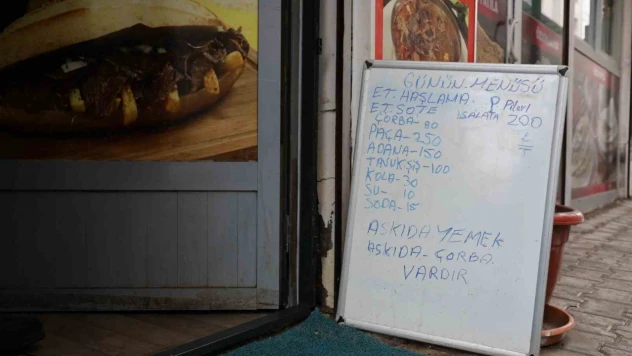 GÜNÜN MENÜSÜ
ET. HAŞLAMA. P Pilavı
ET. SOTE SALATA 200 ₺
ÇORBA- 80
PAÇA-250
ADANA-150
TAVUK ŞİŞ-100
KOLA-30
SU- 10
SODA-15
ASKIDA YEMEK
ASKIDA-ÇORBA.
VARDIR